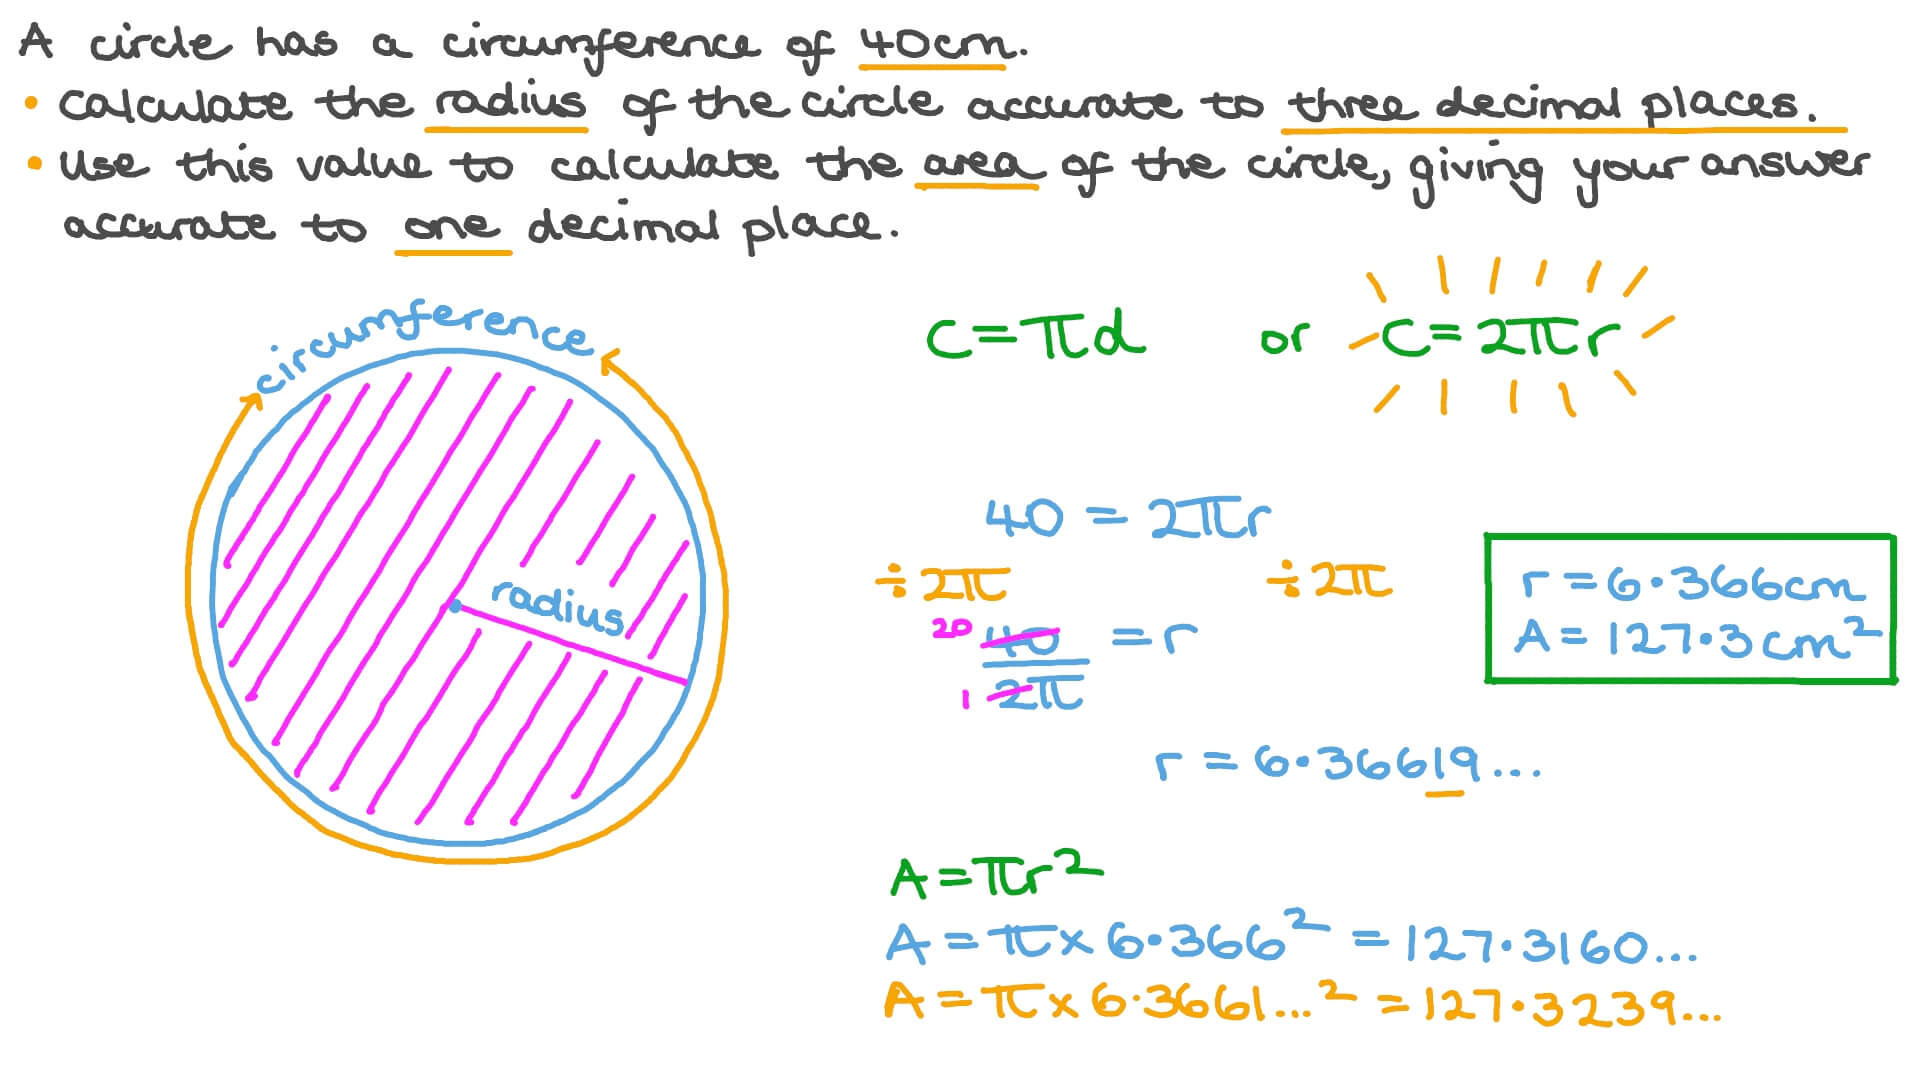 A circle has a circumference of 40cm.
• Calculate the radius of the circle accurate to three decimal places.
• Use this value to calculate the area of the circle, giving your answer
accurate to one decimal place.
circumference
radius
C = πd or C = 2πr
40 = 2πr
÷ 2π ÷ 2π
20 40 = r
1 2π
r = 6·36619...
r = 6·366cm
A = 127·3cm²
A = πr²
A = π × 6·366² = 127·3160...
A = π × 6·3661...² = 127·3239...